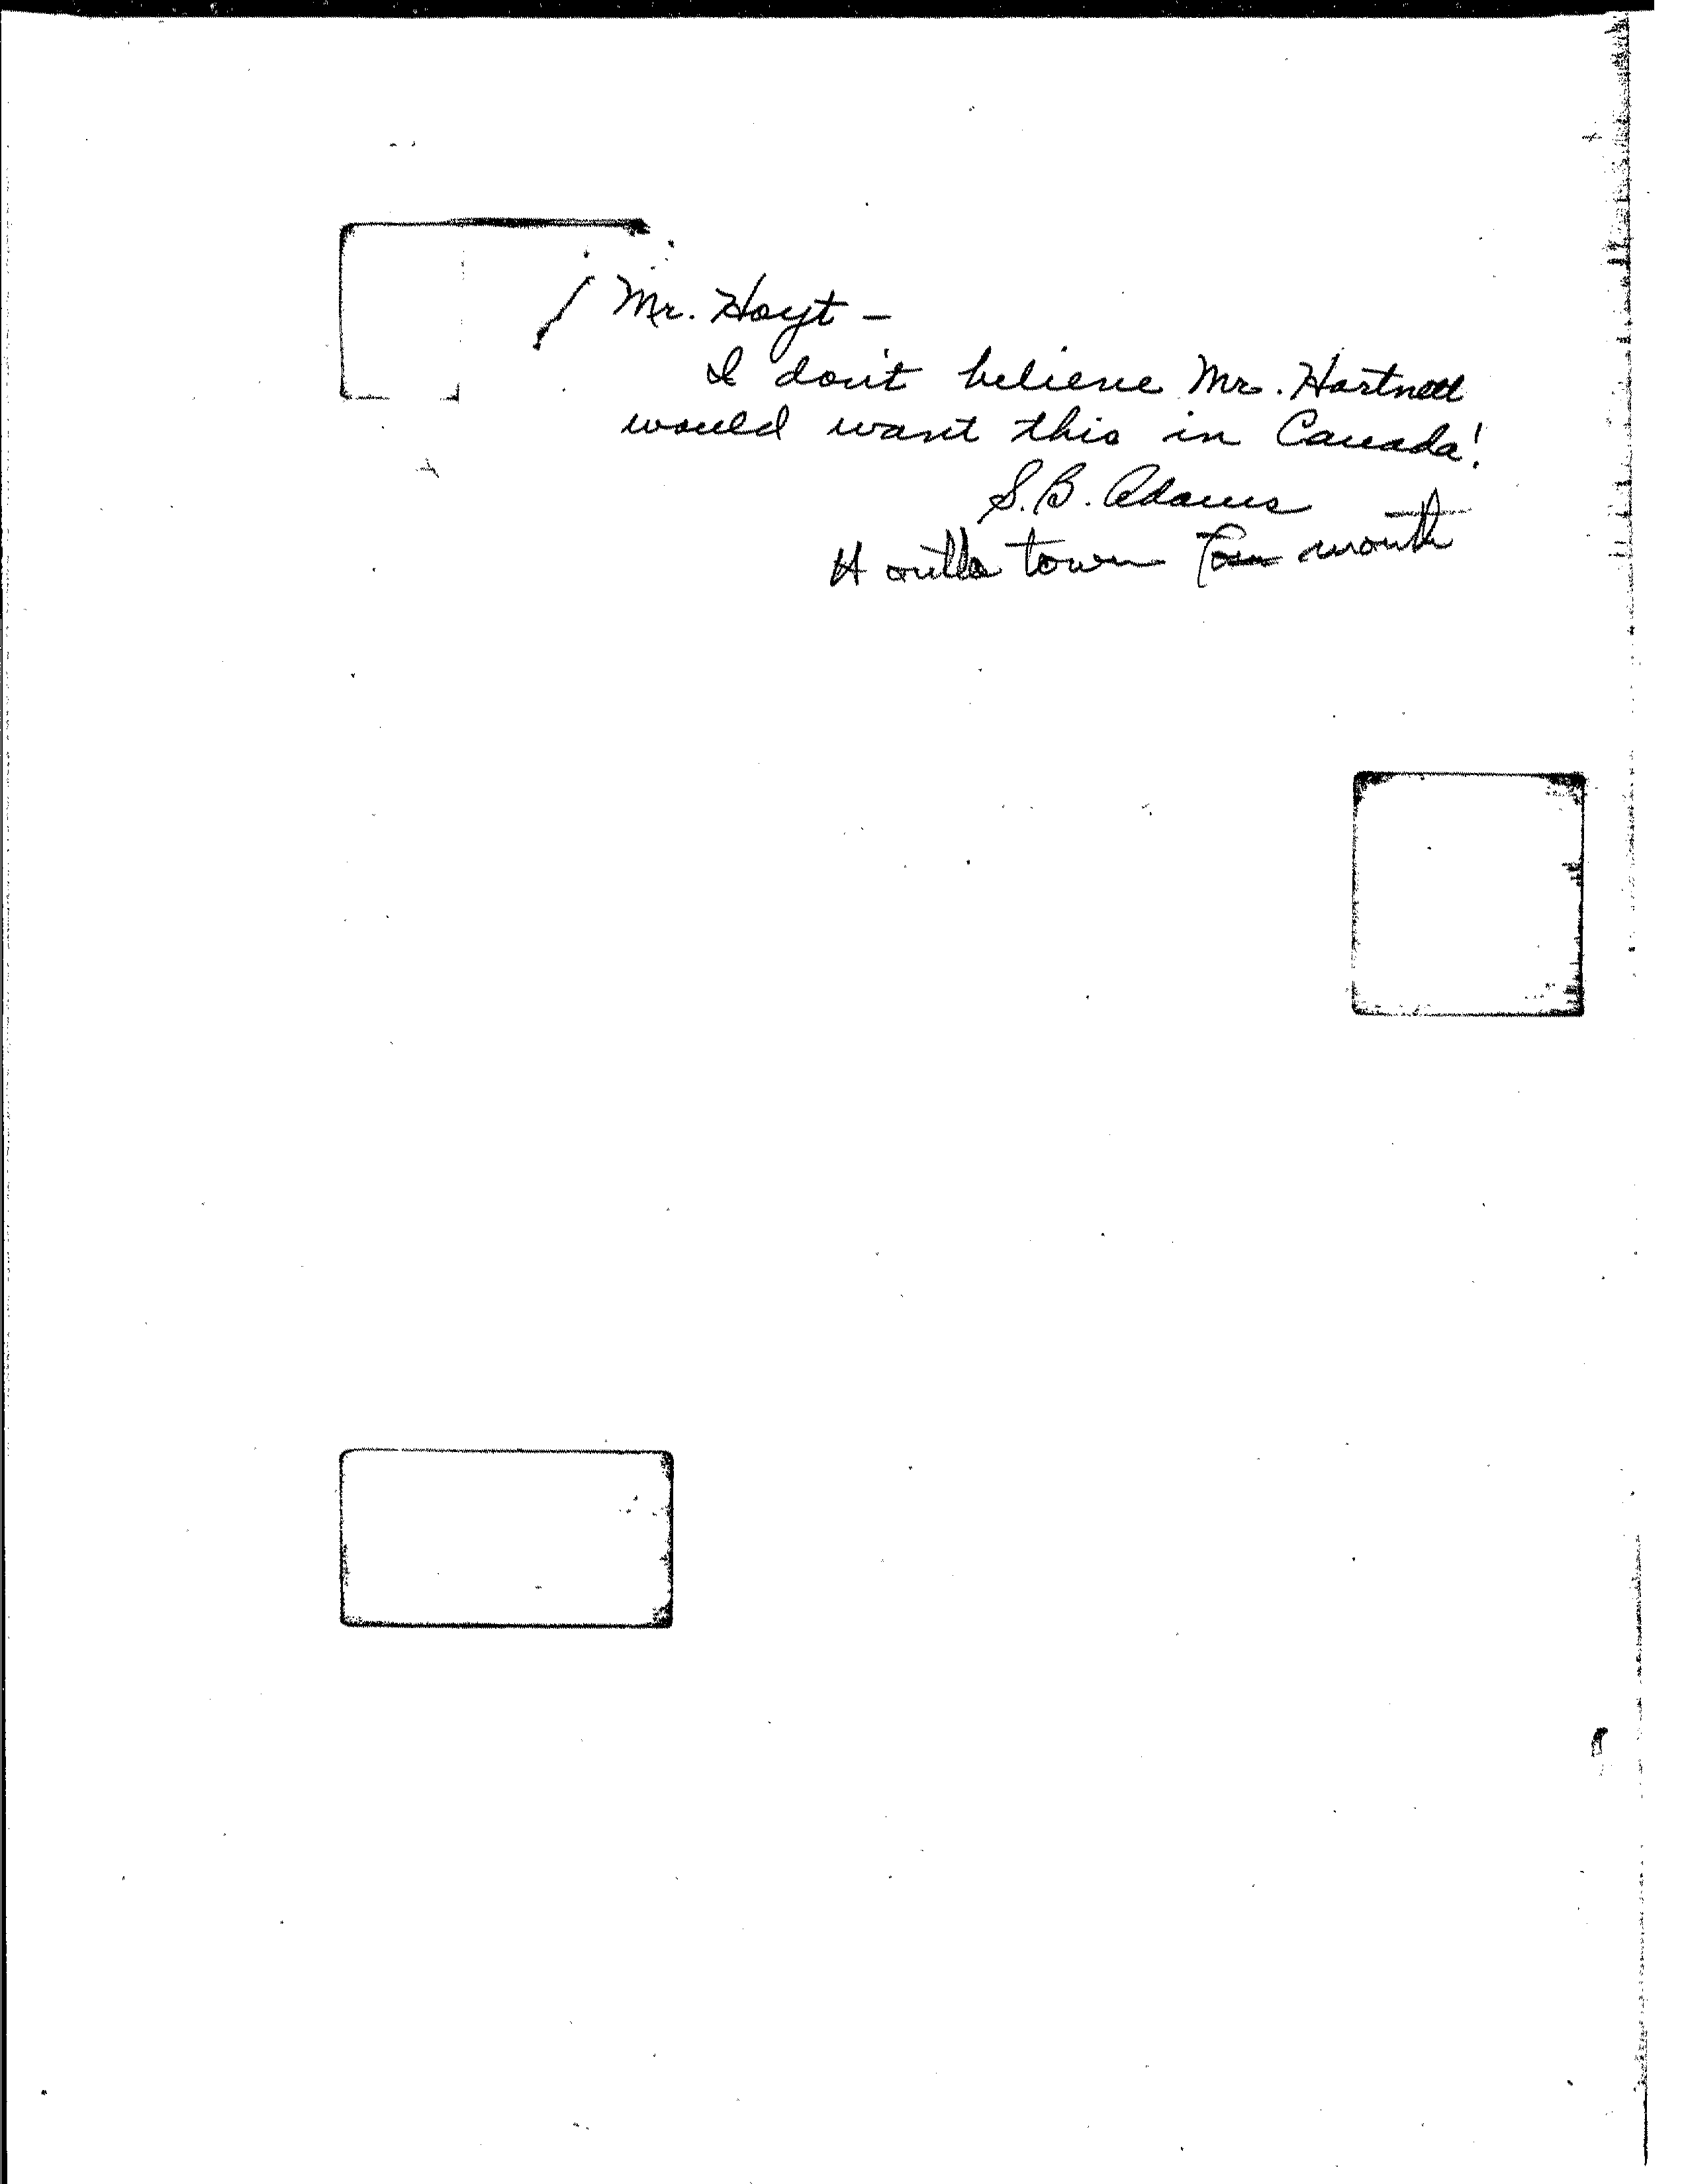 Mr. Hoyt -
I don't believe Mr. Hartnett
would want this in Canada!
S.B. Adams
H town month